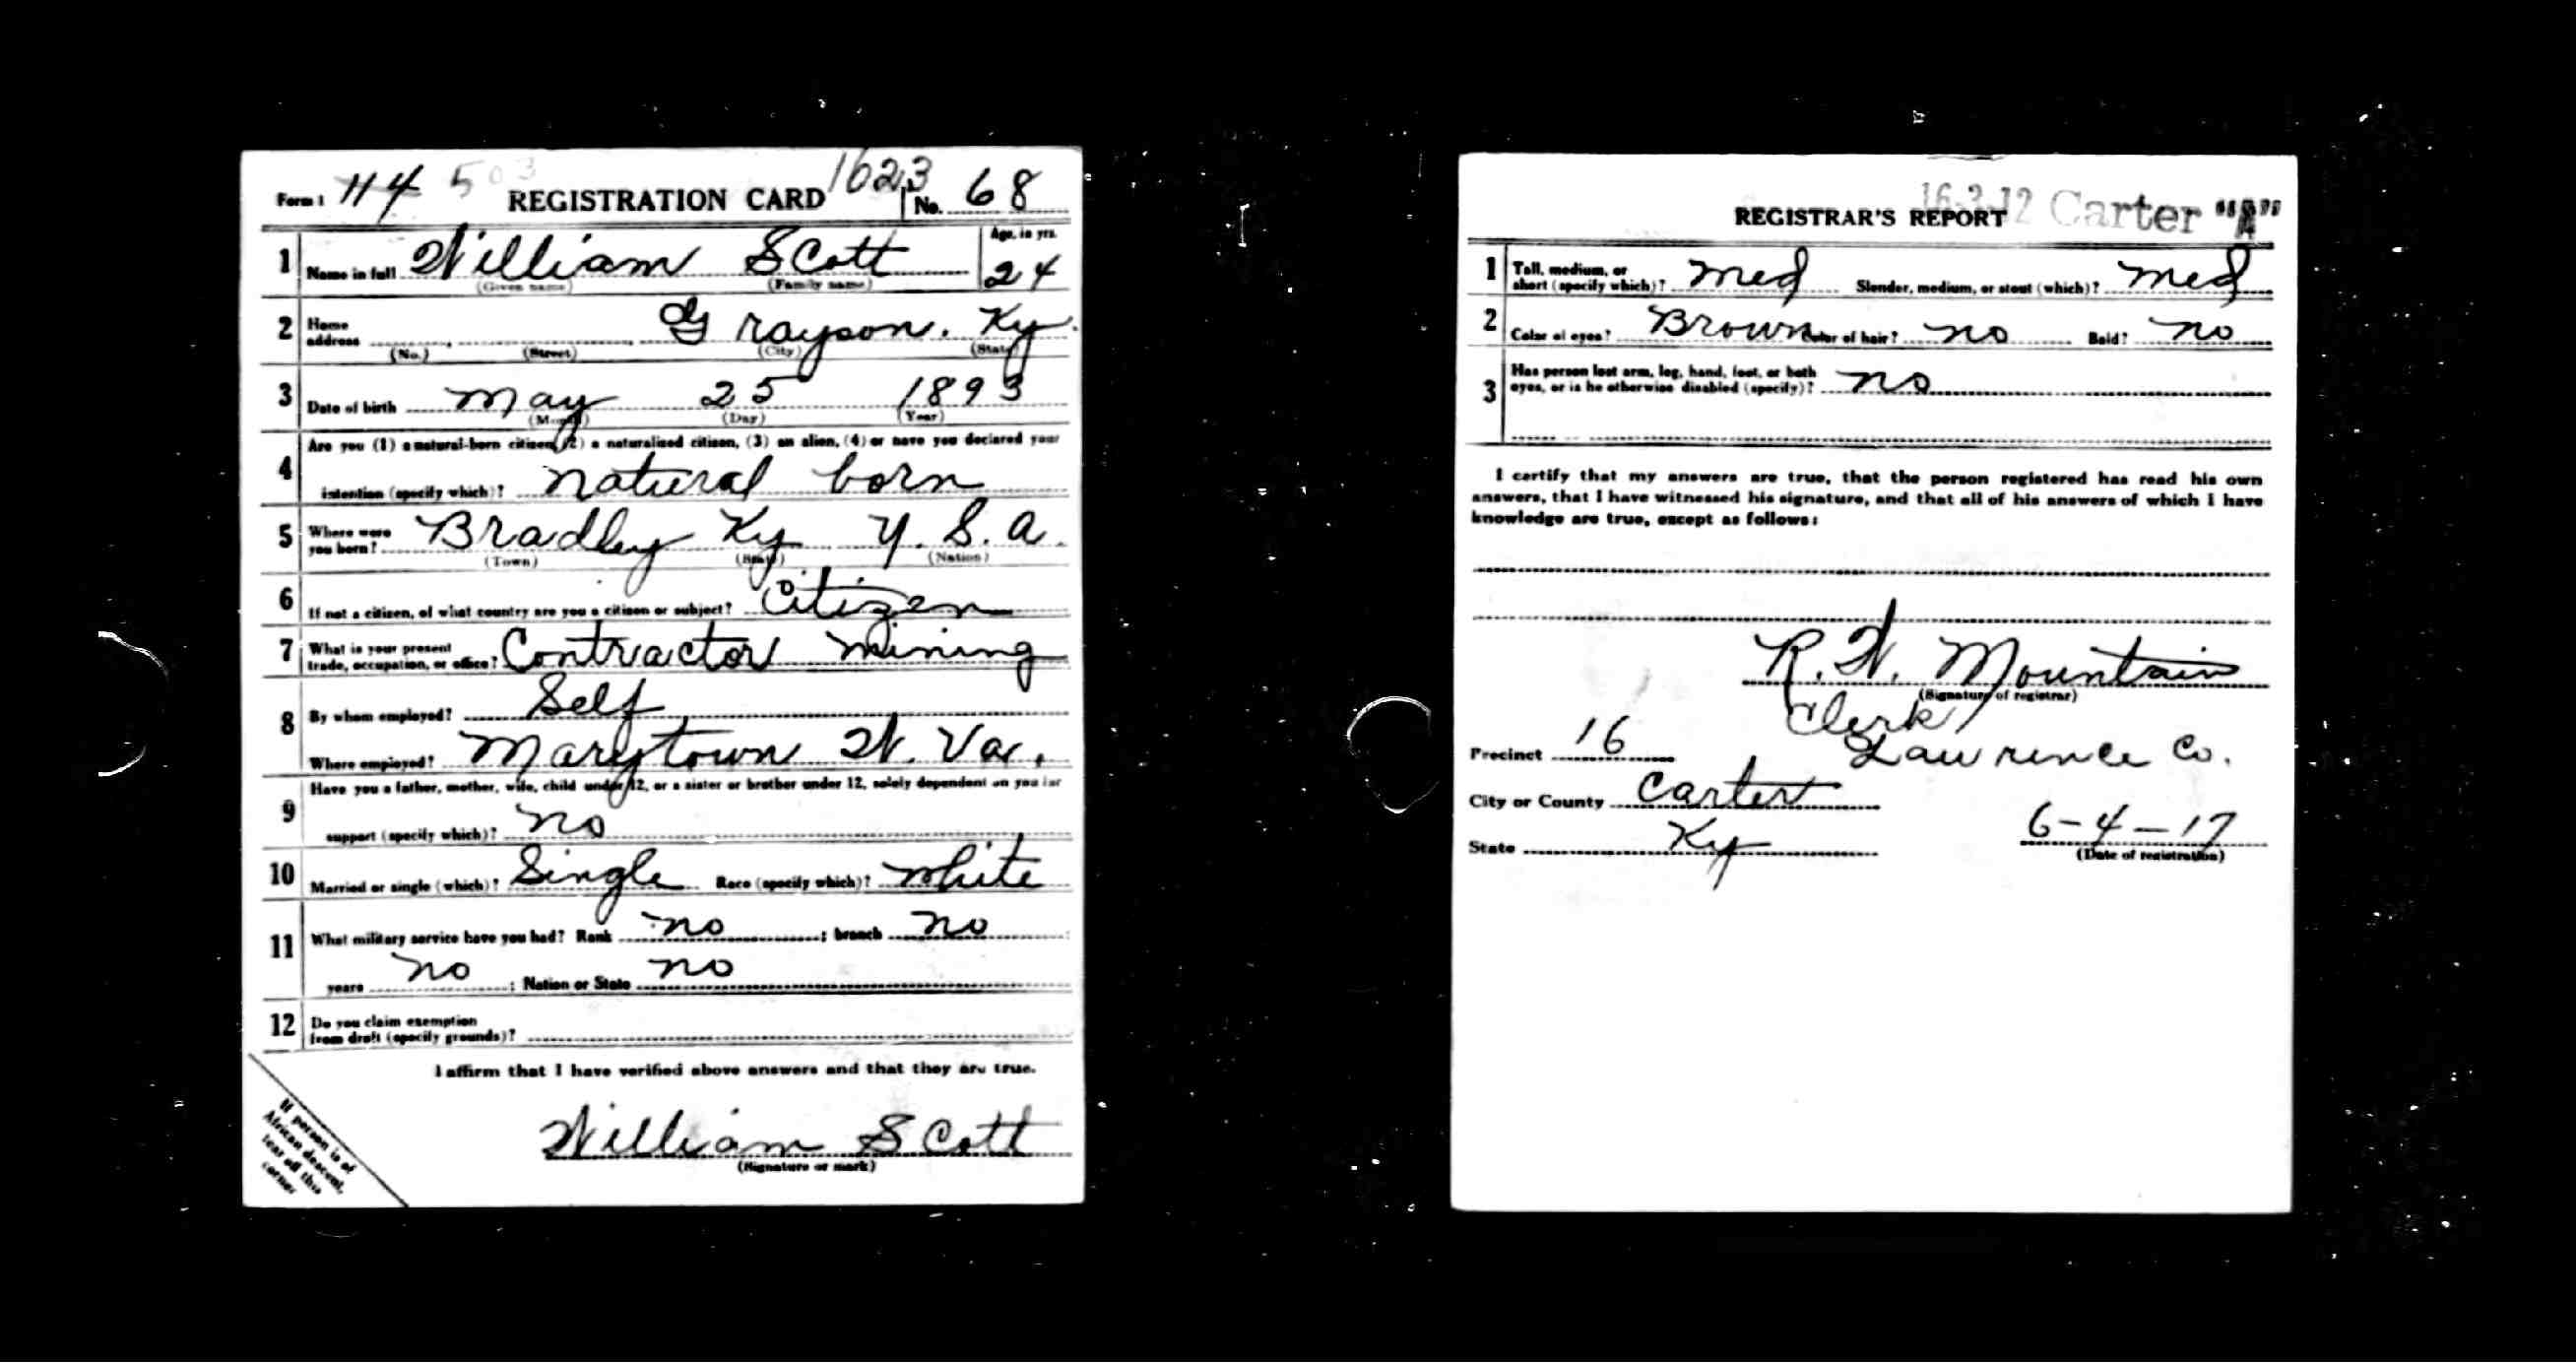 Form 1 114 503 REGISTRATION CARD 1623 No. 68
1 Name in full William Scott Age, in yrs. 24
(Given name) (Family name)
2 Home address Grayson. Ky.
(No.) (Street) (City) (State)
3 Date of birth May 25 1893
(Month) (Day) (Year)
Are you (1) a natural-born citizen, (2) a naturalized citizen, (3) an alien, (4) or have you declared your
4 intention (specify which)? natural born
5 Where were you born? Bradley Ky U. S. A.
(Town) (State) (Nation)
6 If not a citizen, of what country are you a citizen or subject? Citizen
7 What is your present trade, occupation, or office? Contractor Mining
8 By whom employed? Self
Where employed? Marytown W. Va.
Have you a father, mother, wife, child under 12, or a sister or brother under 12, solely dependent on you for
9 support (specify which)? no
10 Married or single (which)? Single Race (specify which)? White
11 What military service have you had? Rank no ; branch no
years no ; Nation or State no
12 Do you claim exemption
from draft (specify grounds)?
I affirm that I have verified above answers and that they are true.
William Scott
(Signature or mark)
If person is of
African descent,
tear off this
corner
16-3-12 Carter "A"
REGISTRAR'S REPORT
1 Tall, medium, or
short (specify which)? Med Slender, medium, or stout (which)? Med
2 Color of eyes? Brown Color of hair? no Bald? no
3 Has person lost arm, leg, hand, foot, or both
eyes, or is he otherwise disabled (specify)? no
I certify that my answers are true, that the person registered has read his own
answers, that I have witnessed his signature, and that all of his answers of which I have
knowledge are true, except as follows:
R. W. Mountain
(Signature of registrar)
Clerk
Precinct 16 Lawrence Co.
City or County Carter
State Ky 6-4-17
(Date of registration)